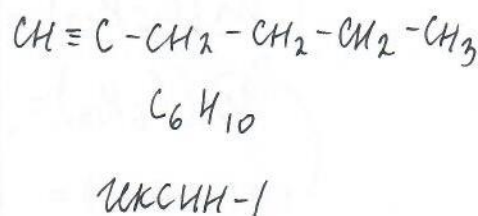 CH ≡ C - CH₂ - CH₂ - CH₂ - CH₃
C₆H₁₀
гексин-1